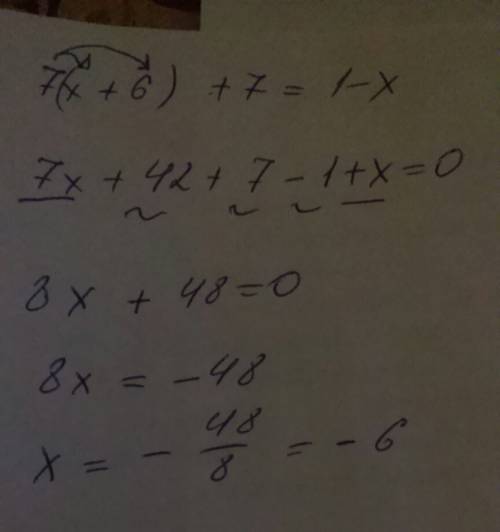 7(x + 6) + 7 = 1 - x
7x + 42 + 7 - 1 + x = 0
8x + 48 = 0
8x = - 48
x = - 48/8 = - 6